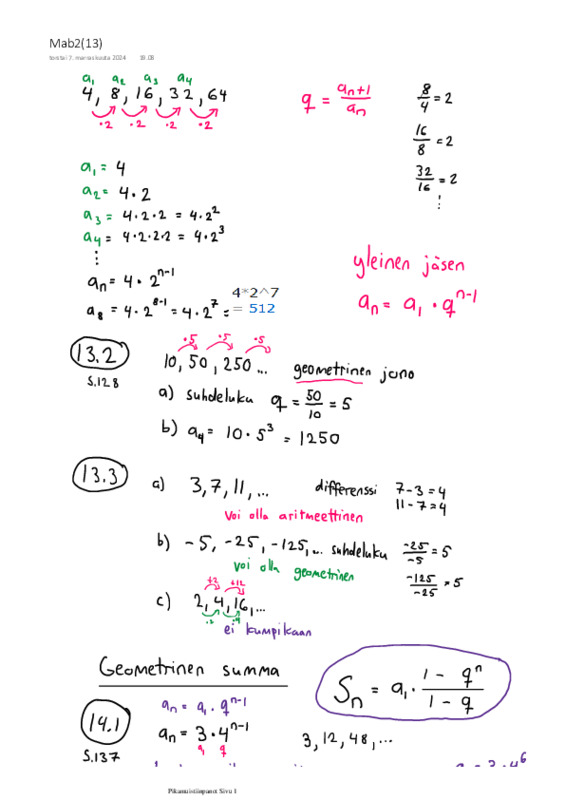 Mab2(13)
torstai 7. marraskuuta 2024 18.08
a₁ a₂ a₃ a₄
4, 8, 16, 32, 64
·2 ·2 ·2 ·2
q = aₙ₊₁/aₙ
8/4 = 2
16/8 = 2
32/16 = 2
⋮
a₁ = 4
a₂ = 4·2
a₃ = 4·2·2 = 4·2²
a₄ = 4·2·2·2 = 4·2³
⋮
aₙ = 4·2ⁿ⁻¹
a₈ = 4·2⁸⁻¹ = 4·2⁷ =
4*2^7
= 512
yleinen jäsen
aₙ = a₁·qⁿ⁻¹
13.2
s.128
·5 ·5 ·5
10, 50, 250 ... geometrinen jono
a) suhdeluku q = 50/10 = 5
b) a₄ = 10·5³ = 1250
13.3
a) 3, 7, 11, ... differenssi 7-3=4
11-7=4
voi olla aritmeettinen
b) -5, -25, -125, ... suhdeluku -25/-5 = 5
voi olla geometrinen
-125/-25 = 5
+2 +12
c) 2, 4, 16, ...
·2 ·4
ei kumpikaan
Geometrinen summa
Sₙ = a₁ · (1 - qⁿ)/(1 - q)
14.1
s.137
aₙ = a₁·qⁿ⁻¹
aₙ = 3·4ⁿ⁻¹
a₁ q
3, 12, 48, ...
Pikamuistiinpanot Sivu 1